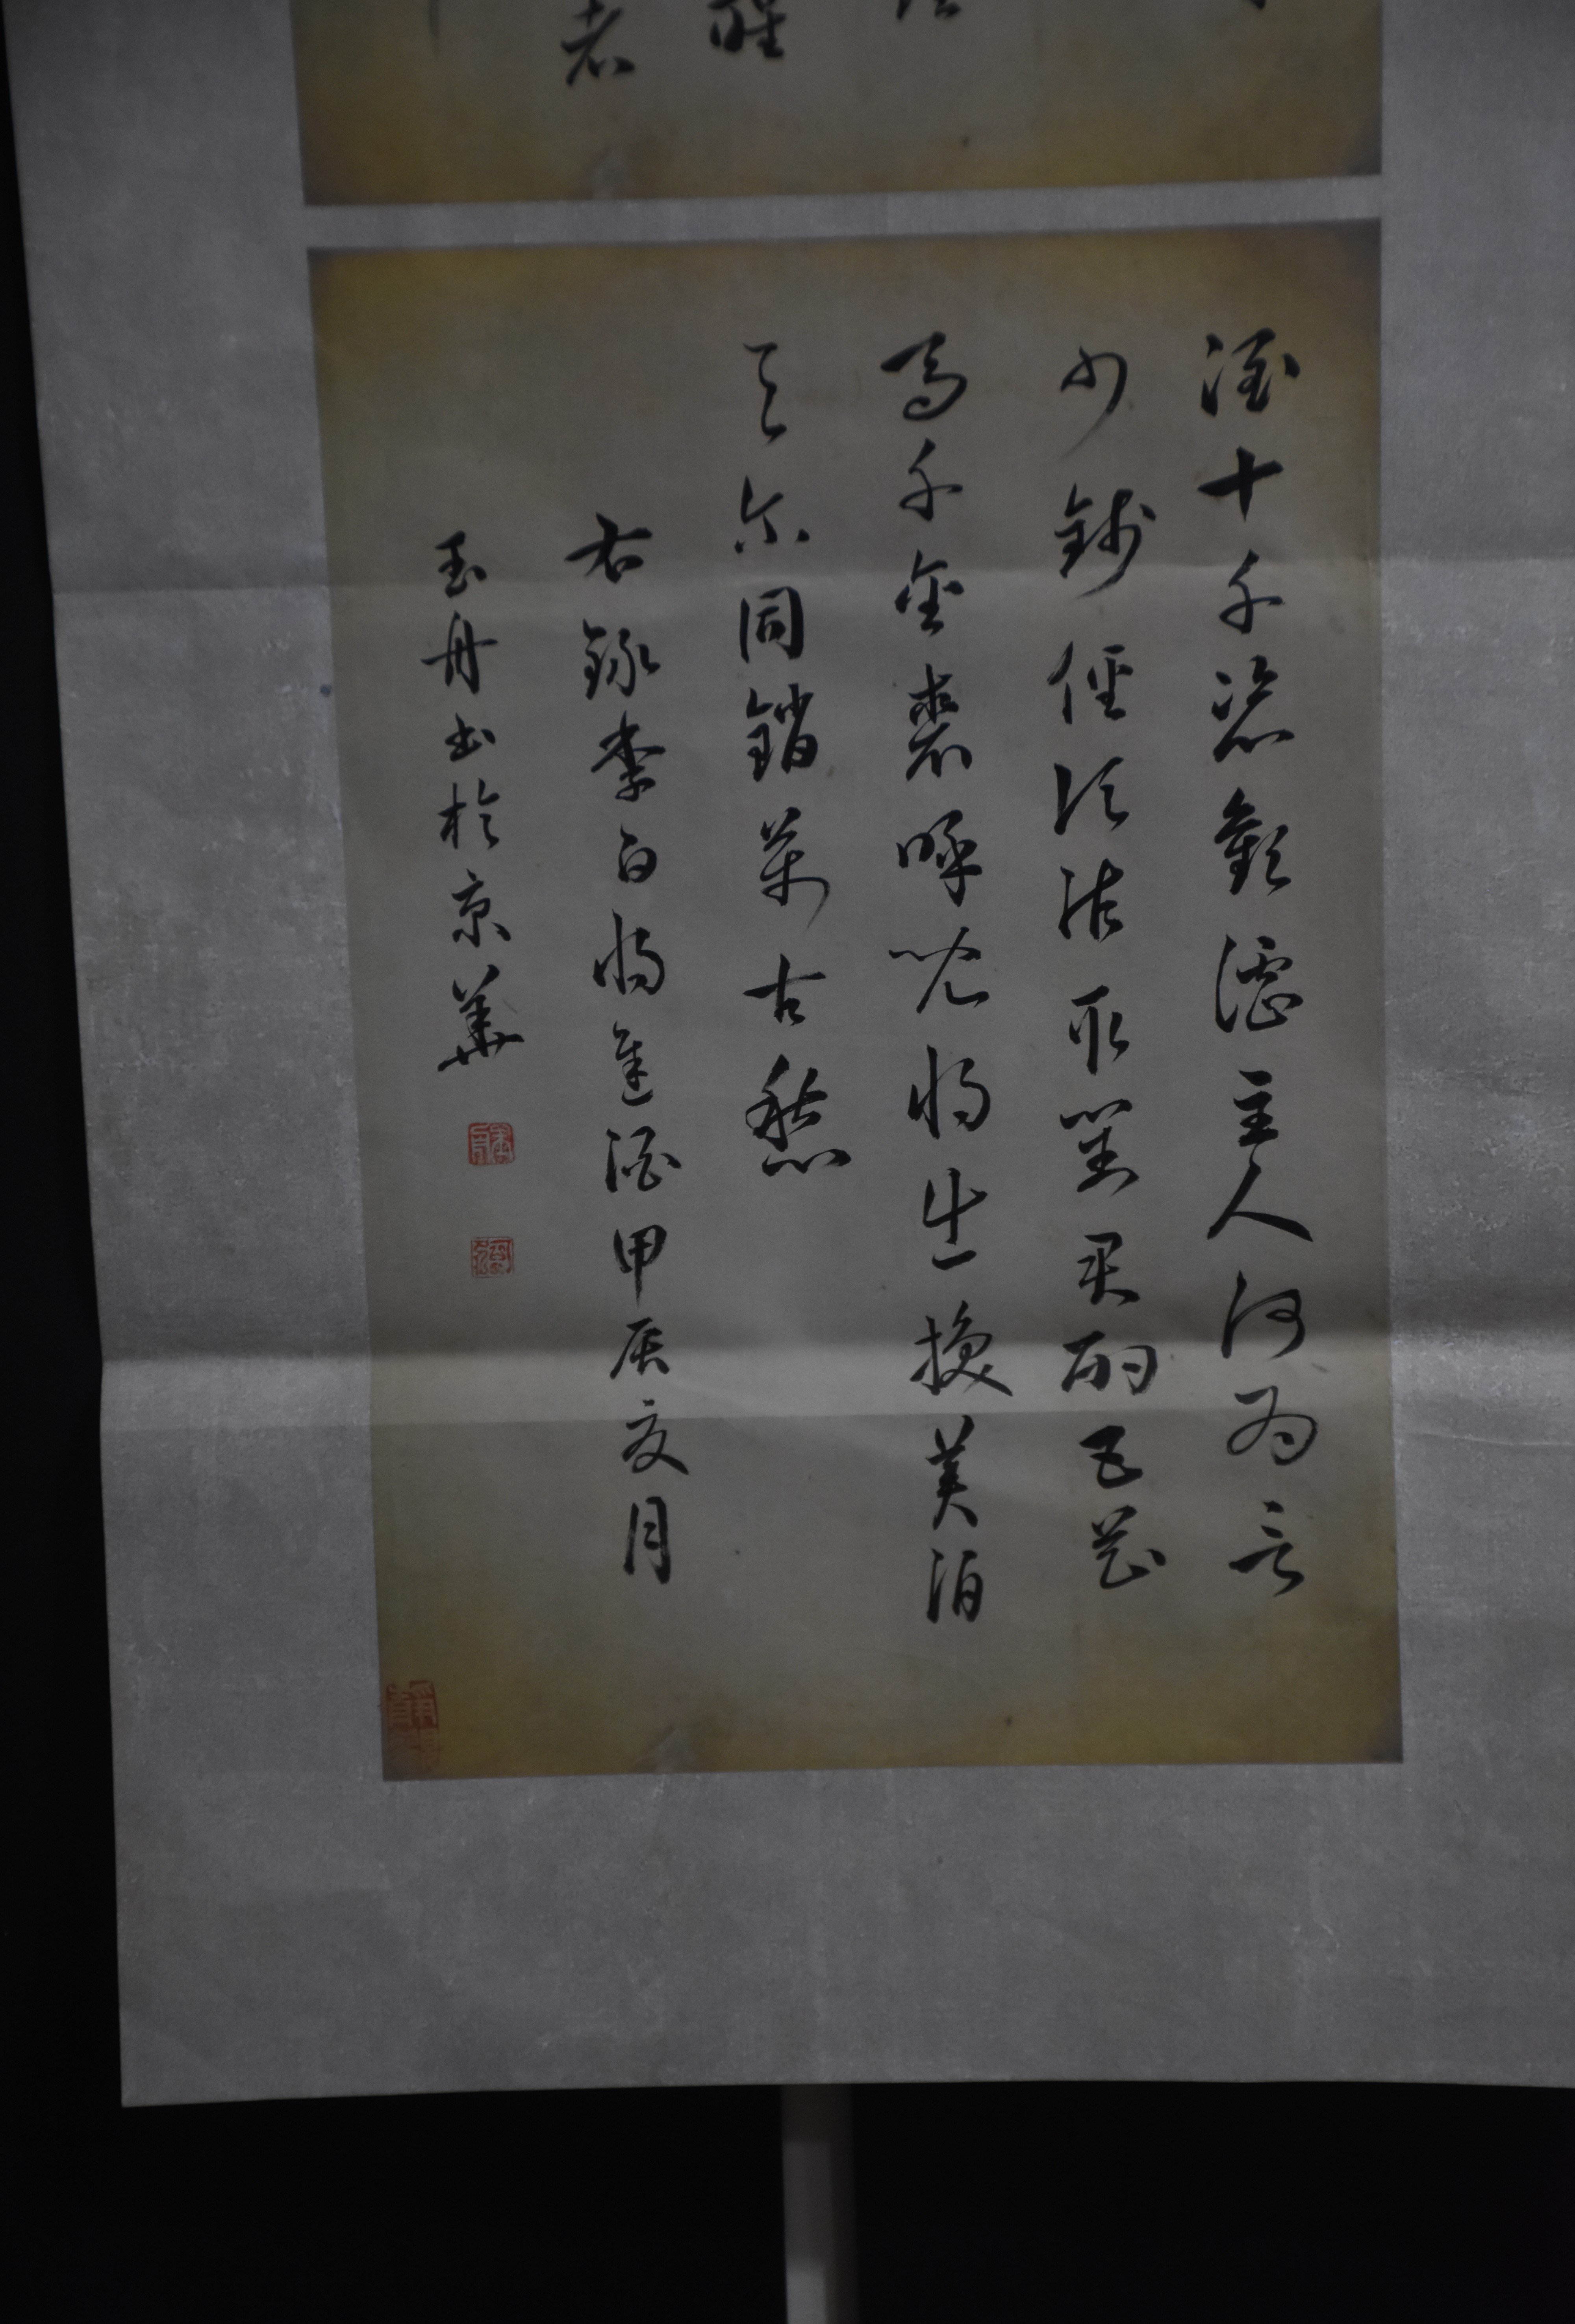 醒
者
酒十千恣歡謔主人何為言
少錢徑須沽取對君酌五花
馬千金裘呼兒將出換美酒
與尔同銷萬古愁
右錄李白將進酒甲辰夏月
玉舟書於京華